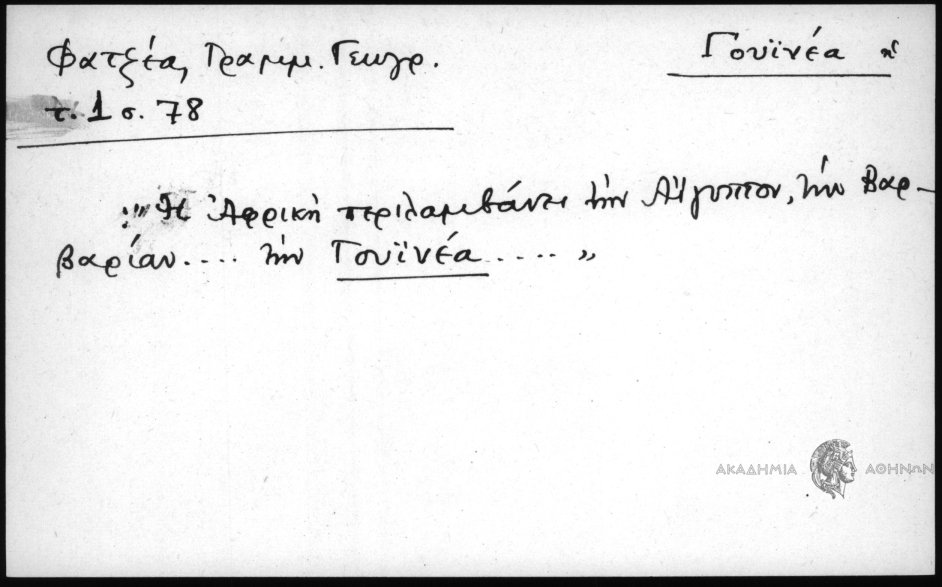 Φατζέα, Γραμμ. Γεωγρ.
Γουϊνέα ἡ
τ. 1 σ. 78
„Ἡ Ἀφρικὴ περιλαμβάνει τὴν Αἴγυπτον, τὴν Βαρ-
βαρίαν.... τὴν Γουϊνέα..... „
ΑΚΑΔΗΜΙΑ ΑΘΗΝΩΝ